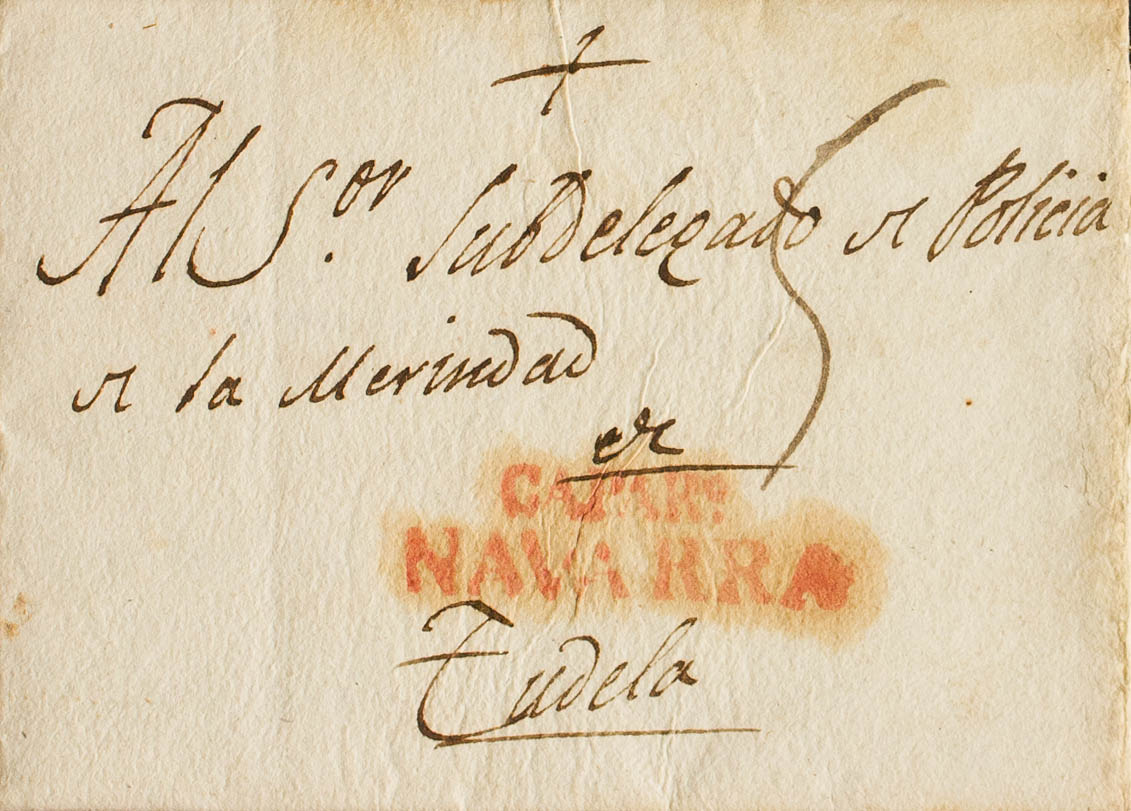 Al S.or SubDelegado de Policia
de la Merindad
de
NAVARRA
Tudela